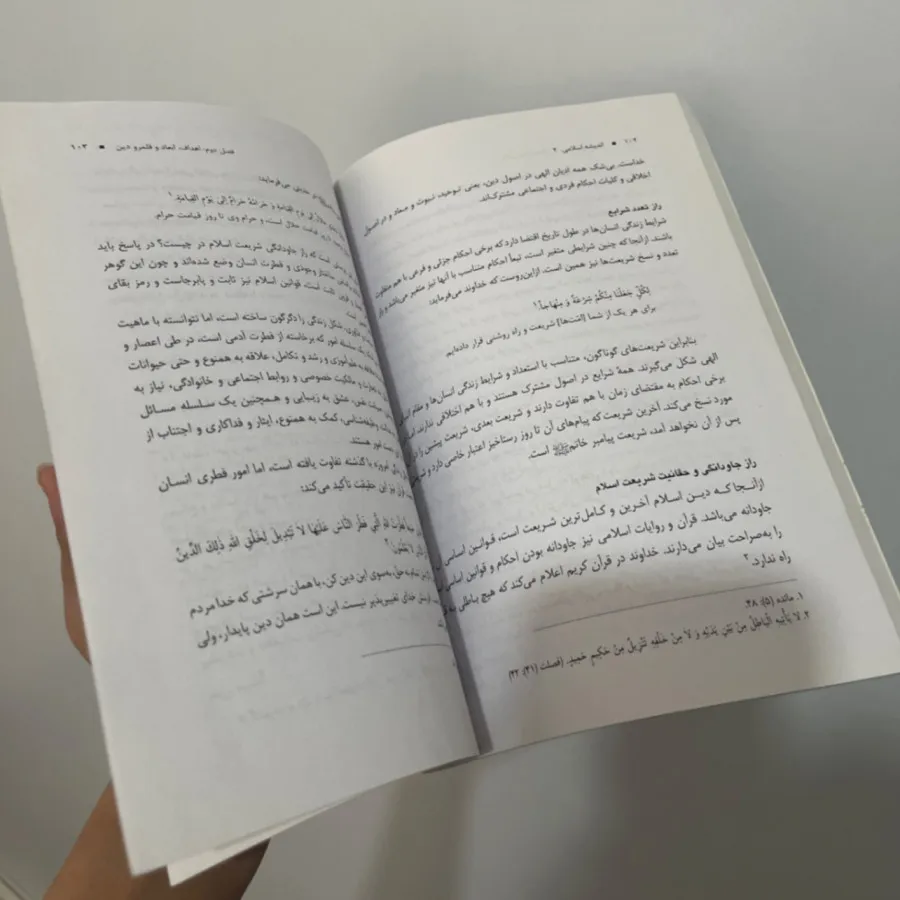 ۱۰۲ ■ اندیشه اسلامی ۲
خداست. بی‌شک همه ادیان الهی در اصول دین، یعنی توحید، نبوت و معاد و در اصول
اخلاقی و کلیات احکام فردی و اجتماعی مشترک‌اند.
راز تعدد شرایع
شرایط زندگی انسان‌ها در طول تاریخ اقتضا دارد که برخی احکام جزئی و فرعی با هم متفاوت
باشند. ازآنجا‌که چنین شرایطی متغیر است، تبعاً احکام متناسب با آنها نیز متغیر می‌باشد و راز
تعدد و نسخ شریعت‌ها نیز همین است. ازاین‌روست که خداوند می‌فرماید:
لِكُلٍّ جَعَلْنَا مِنْكُمْ شِرْعَةً وَ مِنْهَاجاً.۱
برای هر یک از شما [امت‌ها] شریعت و راه روشنی قرار داده‌ایم.
بنابراین شریعت‌های گوناگون، متناسب با استعداد و شرایط زندگی انسان‌ها و مقام
الهی شکل می‌گیرند. همهٔ شرایع در اصول مشترک هستند و با هم اختلافی ندارند،
برخی احکام به مقتضای زمان با هم تفاوت دارند و شریعت بعدی، شریعت پیشین را در
مورد نسخ می‌کند. آخرین شریعت که پیام‌های آن تا روز رستاخیز اعتبار خاصی دارد و
پس از آن نخواهد آمد، شریعت پیامبر خاتمﷺ است.
راز جاودانگی و حقانیت شریعت اسلام
ازآنجا‌که دین اسلام آخرین و کامل‌ترین شریعت است، قوانین اساسی
جاودانه می‌باشد. قرآن و روایات اسلامی نیز جاودانه بودن احکام و قوانین اساسی
را به‌صراحت بیان می‌دارند. خداوند در قرآن کریم اعلام می‌کند که هیچ باطلی به
راه ندارد.۲
۱. مائده (۵): ۴۸.
۲. لا يَأْتِيهِ الْبَاطِلُ مِنْ بَيْنِ يَدَيْهِ وَ لاَ مِنْ خَلْفِهِ تَنْزِيلٌ مِنْ حَكِيمٍ حَمِيدٍ. (فصلت (۴۱): ۴۲)
فصل دوم: اهداف، ابعاد و قلمرو دین ■ ۱۰۳
در حدیثی می‌فرماید:
إِلَى يَوْمِ الْقِيَامَةِ وَ حَرَامُهُ حَرَامٌ إِلَى يَوْمِ الْقِيَامَةِ.۱
قیامت حلال است، و حرام وی تا روز قیامت حرام.
است که راز جاودانگی شریعت اسلام در چیست؟ در پاسخ باید
ساختار وجودی و فطرت انسان وضع شده‌اند و چون این گوهر
ثابت است، قوانین اسلام نیز ثابت و پابرجاست و رمز بقای
است.
شکل زندگی را دگرگون ساخته است، اما نتوانسته با ماهیت
یک سلسله امور که برخاسته از فطرت آدمی است، در طی اعصار و
علم‌آموزی و رشد و تکامل، علاقه به همنوع و حتی حیوانات
و مالکیت خصوصی و روابط اجتماعی و خانوادگی، نیاز به
عشق به زیبایی و همچنین یک سلسله مسائل
وظیفه‌شناسی، کمک به همنوع، ایثار و فداکاری و اجتناب از
امور هستند.
امروزه با گذشته تفاوت یافته است، اما امور فطری انسان
نیز این حقیقت تأکید می‌کند:
فِطْرَتَ اللَّهِ الَّتِي فَطَرَ النَّاسَ عَلَيْهَا لاَ تَبْدِيلَ لِخَلْقِ اللَّهِ ذَلِكَ الدِّينُ
لاَ يَعْلَمُونَ.۲
تمام به حق، به‌سوی این دین کن، با همان سرشتی که خدا مردم
آفرینش خدای تغییرپذیر نیست. این است همان دین پایدار، ولی